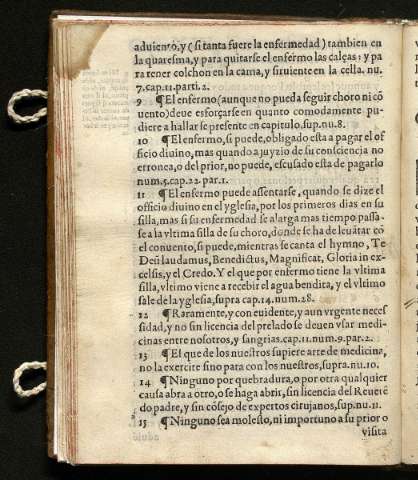 aduiento, y ( si tanta fuere la enfermedad ) tambien en
la quaresma, y para quitarse el enfermo las calças: y pa
ra tener colchon en la cama, y siruiente en la cella. nu.
7. cap. 11. parti. 2.
9 ¶ El enfermo (aunque no pueda seguir choro ni cõ
uento) deue esforçarse en quanto comodamente pu-
diere a hallarse presente en capitulo. sup. nu. 8.
10 ¶ El enfermo, si puede, obligado esta a pagar el of
ficio diuino, mas quando a juyzio de su consciencia no
erronea, o del prior, no puede, escusado esta de pagarlo
num. 5. cap. 22. par. 1.
11 ¶ El enfermo puede assentarse , quando se dize el
officio diuino en el yglesia, por los primeros dias en su
silla, mas si su enfermedad se alarga mas tiempo passa-
se a la vltima silla de su choro, donde se ha de leuãtar cõ
el conuento, si puede, mientras se canta el hymno , Te
Deũ laudamus, Benedictus, Magnificat, Gloria in ex-
celsis, y el Credo. Y el que por enfermo tiene la vltima
silla, vltimo viene a recebir el agua bendita, y el vltimo
sale de la yglesia, supra cap. 14. num. 28.
12 ¶ Raramente, y con euidente, y aun vrgente neces
sidad, y no sin licencia del prelado se deuen vsar medi-
cinas entre nosotros, y sangrias. cap. 11. num. 9. par. 2.
13 ¶ El que de los nuestros supiere arte de medicina,
no la exercite sino para con los nuestros, supra. nu. 10.
14 ¶ Ninguno por quebradura, o por otra qualquier
causa abra a otro, o se haga abrir, sin licencia del Reuerẽ
do padre, y sin cõsejo de expertos cirujanos, sup. nu. 11.
15 ¶ Ninguno sea molesto, ni importuno a su prior o
visita